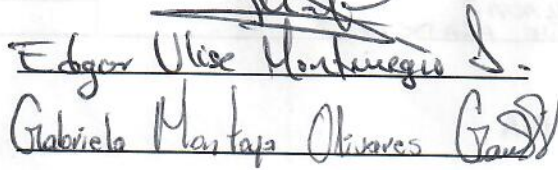 Edgar Ulise Montenegro S.
Gabriela Montaya Olivares